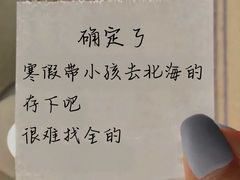 确定了
寒假带小孩去北海的
存下吧
很难找全的